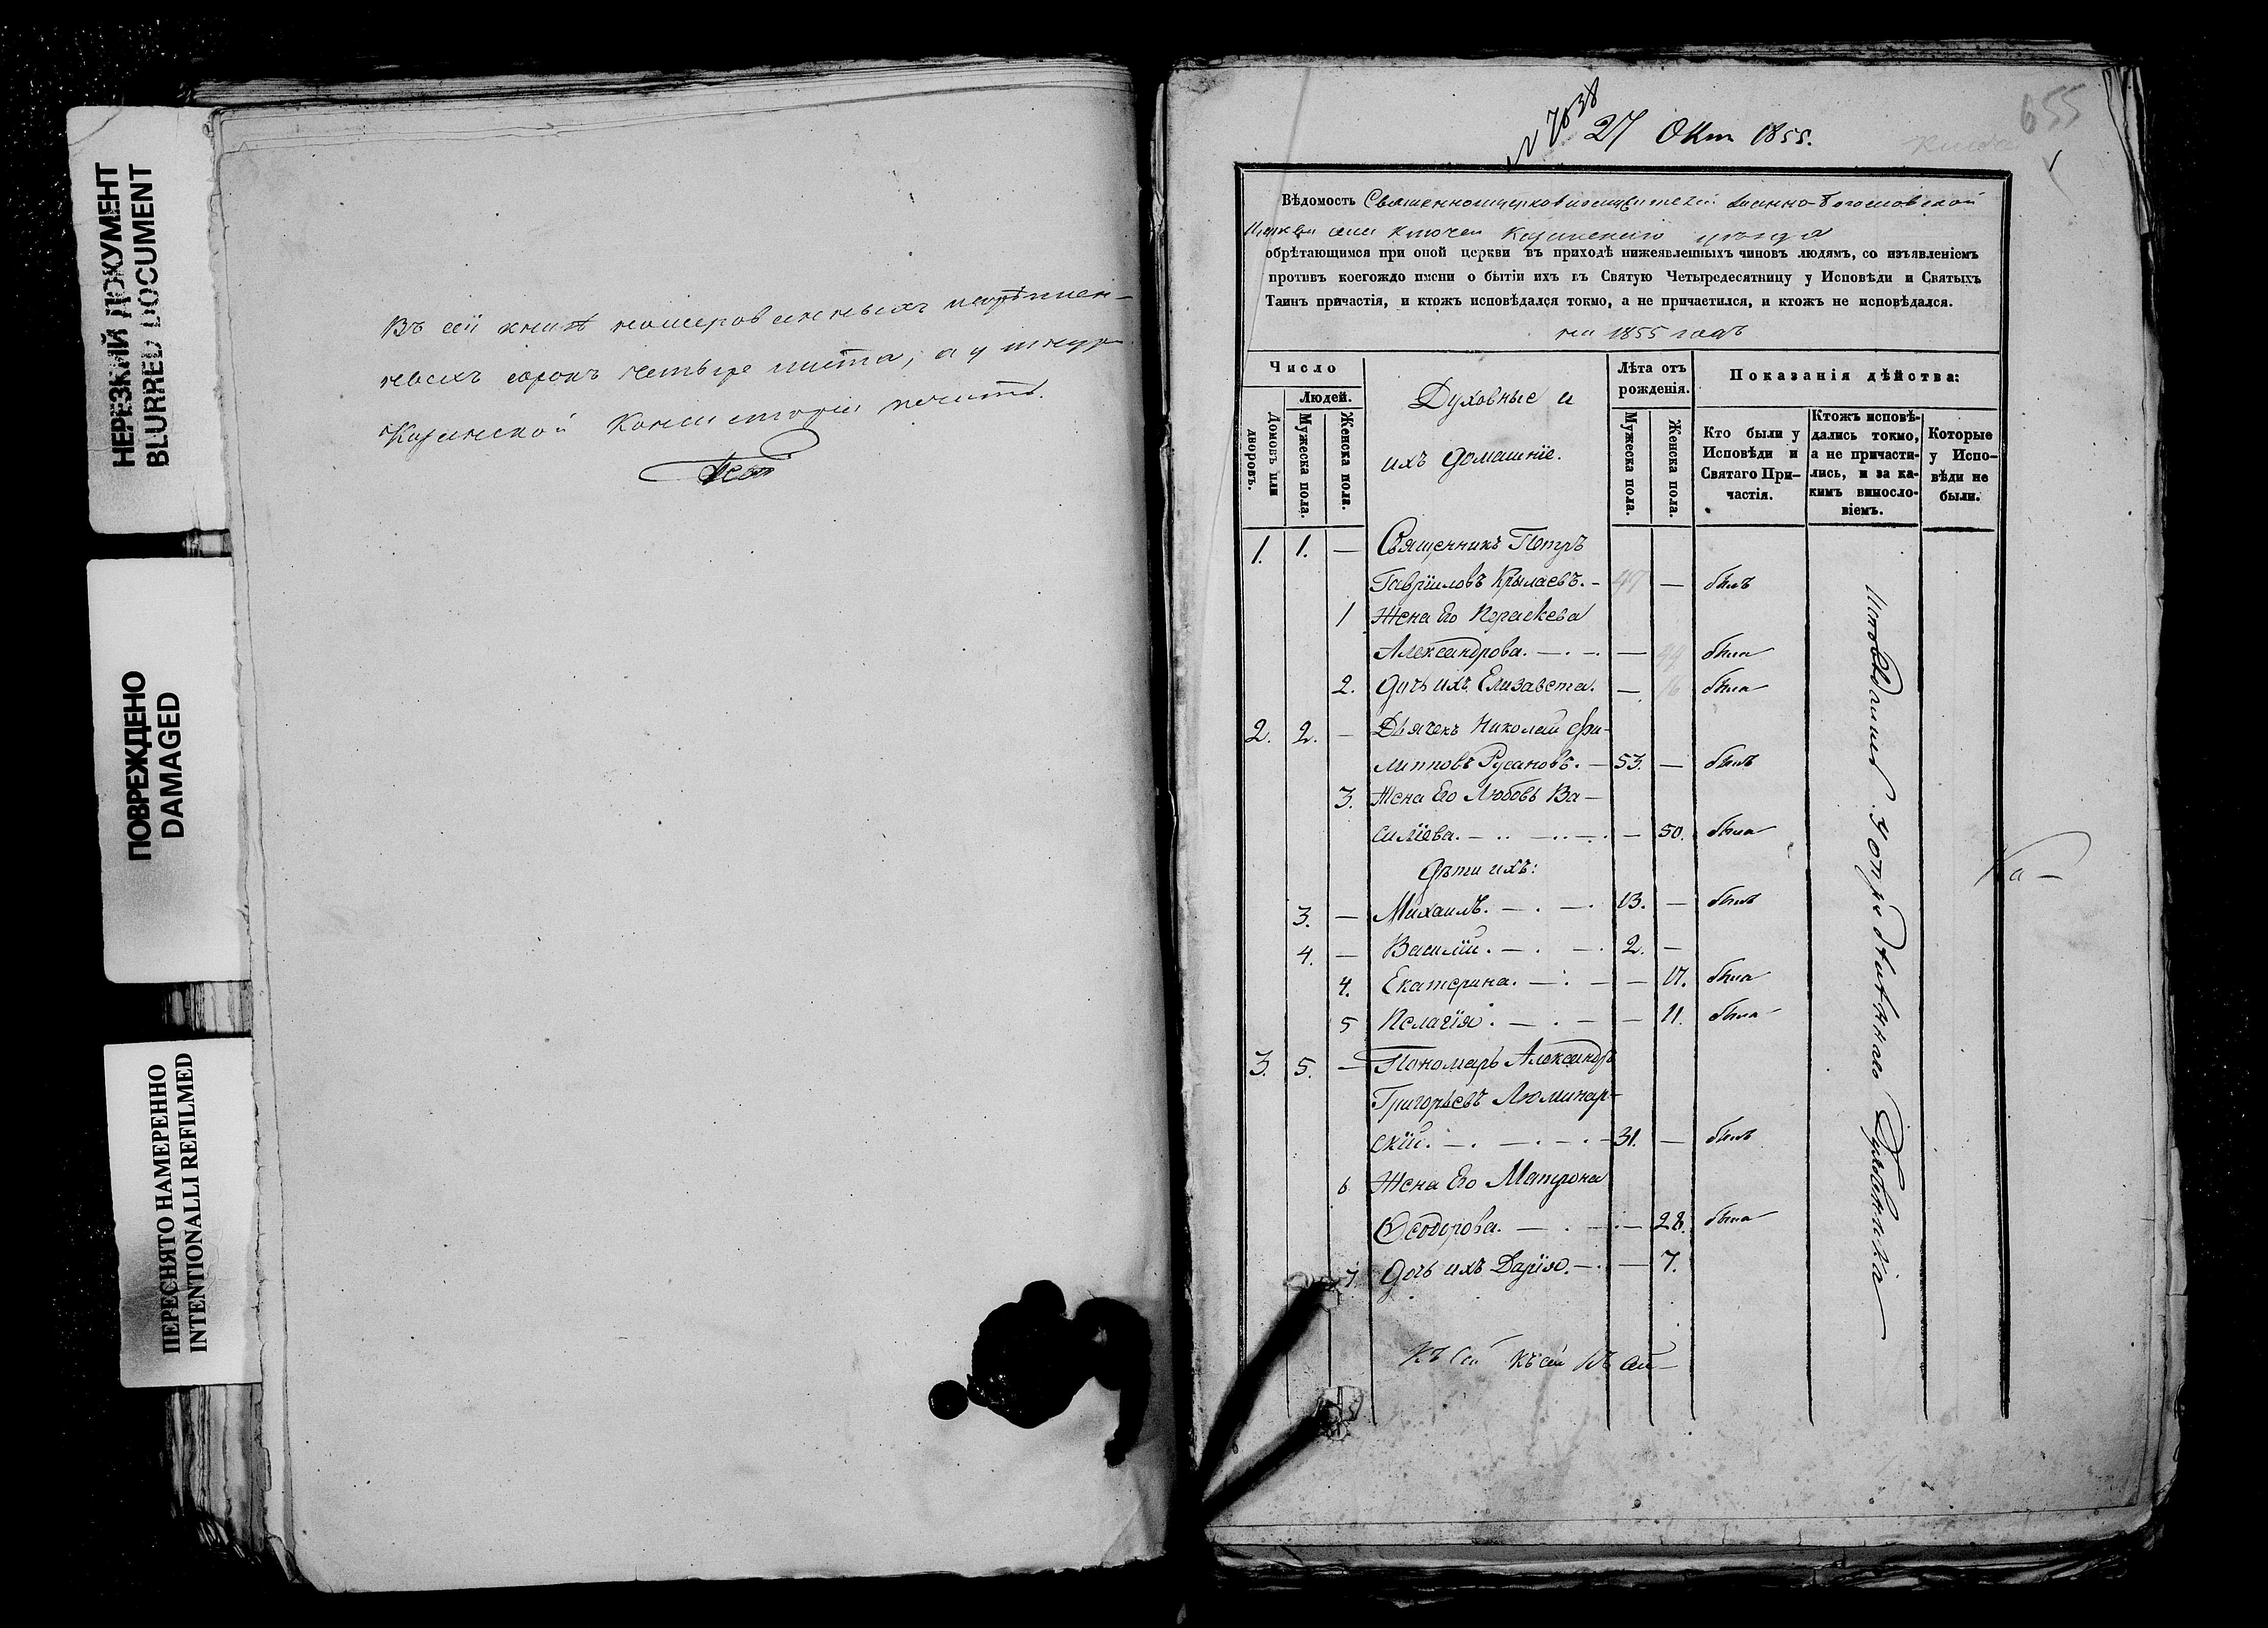 НЕРЕЗКИЙ ДОКУМЕНТ
BLURRED DOCUMENT
ПОВРЕЖДЕНО
DAMAGED
ПЕРЕСНЯТО НАМЕРЕННО
INTENTIONALLI REFILMED
Въ сей книгѣ
сорокъ четыре листа, а у
Казанской Консисторіи печать.
655
№ 7038
27 Окт 1855.
Вѣдомость Священноцерковнослужителей Іоанно-Богословской
Церкви села Ключей Казанскаго уѣзда
обрѣтающимся при оной церкви въ приходѣ нижеявленныхъ чиновъ людямъ, со изъявленіемъ
противъ коегождо имени о бытіи ихъ въ Святую Четыредесятницу у Исповѣди и Святыхъ
Таинъ причастія, и ктожъ исповѣдался токмо, а не причастился, и ктожъ не исповѣдался.
на 1855 годъ
Число
Людей.
Домовъ или дворовъ.
Мужеска пола.
Женска пола.
Духовные и
ихъ домашніе.
Лѣта отъ рожденія.
Мужеска пола.
Женска пола.
Показанія дѣйства:
Кто были у Исповѣди и Святаго При-частія.
Ктожъ исповѣ-дались токмо, а не причасти-лись, и за ка-кимъ винослo-віемъ.
Которые у Испо-вѣди не были.
1. 1. — Священникъ Петръ
Гавріиловъ Крылаевъ. — 47 — былъ
1 Жена Его Параскева
Александрова. — . — . — 44 была
2. Дочь ихъ Елизавета. — 16 была
2. 2. — Дьячекъ Николай Фи-
липповъ Русановъ. — 53. — былъ
3. Жена Его Любовь Ва-
силіева. — 50. была
Дѣти ихъ:
3. — Михаилъ. — . — . 13. — былъ
4. — Василій. — . — . 2. —
4. Екатерина. — . — — 17. была
5 Пелагія. — . — — 11. была
3. 5. — Пономарь Александръ
Григорьевъ Люминар-
скій. — . — . — 31. — былъ
6 Жена Его Матрона
Ѳеодорова. — . — — 28. была
7. Дочь ихъ Дарія. — . — 7.
Къ сей къ сей къ сей